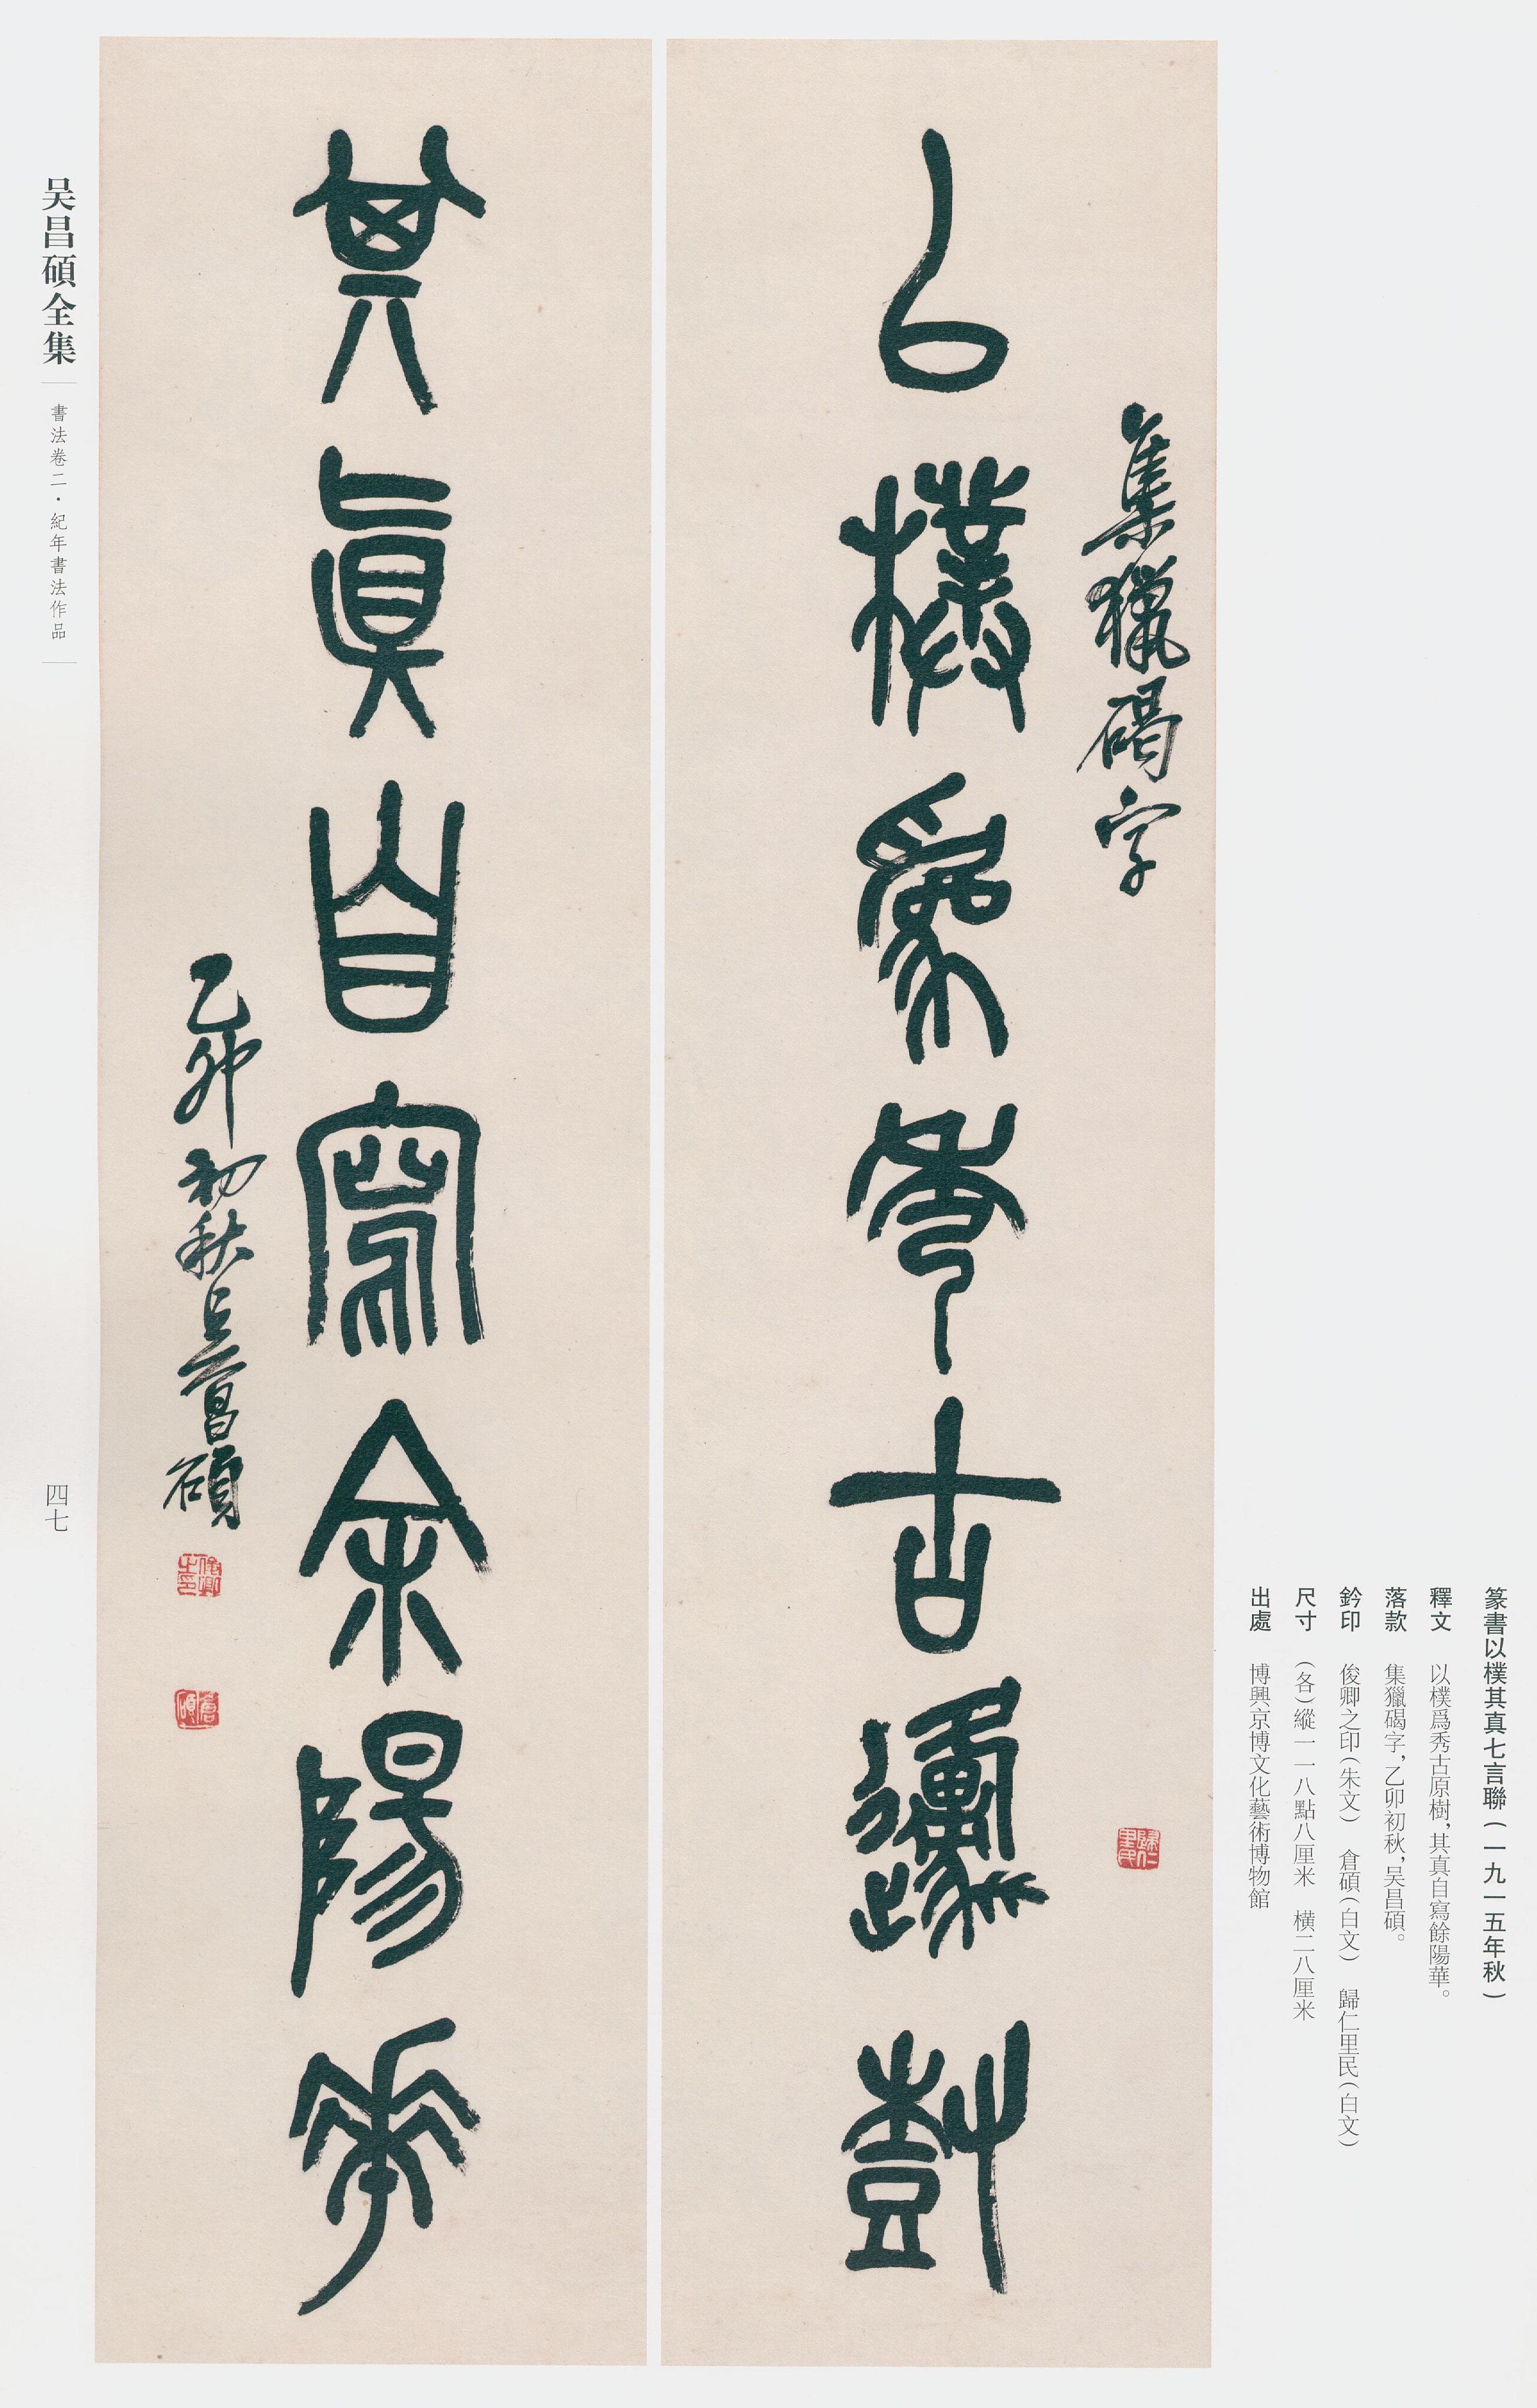 篆書以樸其真七言聯(一九一五年秋)
釋文　以樸爲秀古原樹，其真自寫餘陽華。
落款　集獵碣字，乙卯初秋，吴昌碩。
鈐印　俊卿之印(朱文)　倉碩(白文)　歸仁里民(白文)
尺寸　(各)縱一一八點八厘米　横二八厘米
出處　博興京博文化藝術博物館
集獵碣字
歸仁里民
以樸爲秀古邍樹
其眞自寫余陽華
乙卯初秋吴昌碩
俊卿之印
倉碩
吴昌碩全集
書法卷二·紀年書法作品
四七